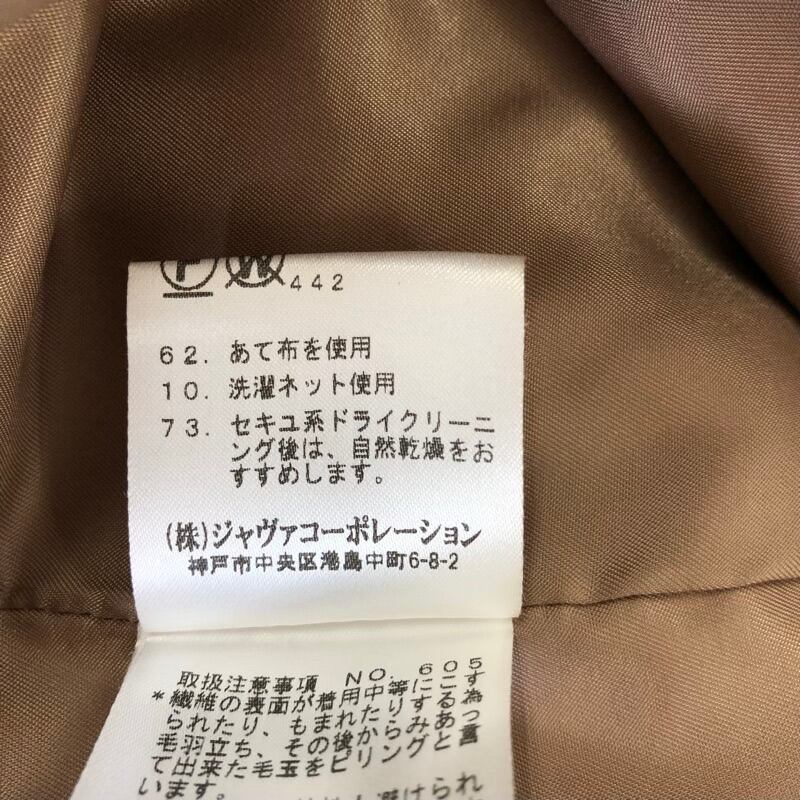 P W 442
62. あて布を使用
10. 洗濯ネット使用
73. セキユ系ドライクリーニ
ング後は、自然乾燥をお
すすめします。
(株)ジャヴァコーポレーション
神戸市中央区港島中町6-8-2
取扱注意事項 NO. 605
*繊維の表面が着用中等にこす
られたり、もまれたりする為
毛羽立ち、その後からみあっ
て出来た毛玉をピリングと言
います。
避けられ